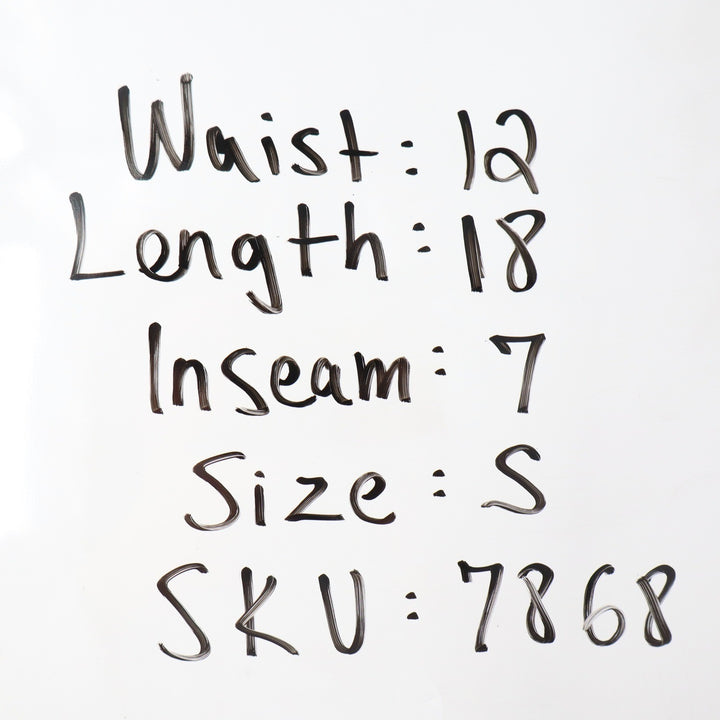 Waist: 12
Length: 18
Inseam: 7
Size: S
SKU: 7868